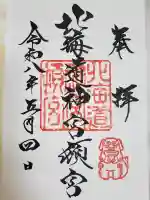 奉拝
北海道神宮頓宮
北海道
頓宮
令和八年五月四日